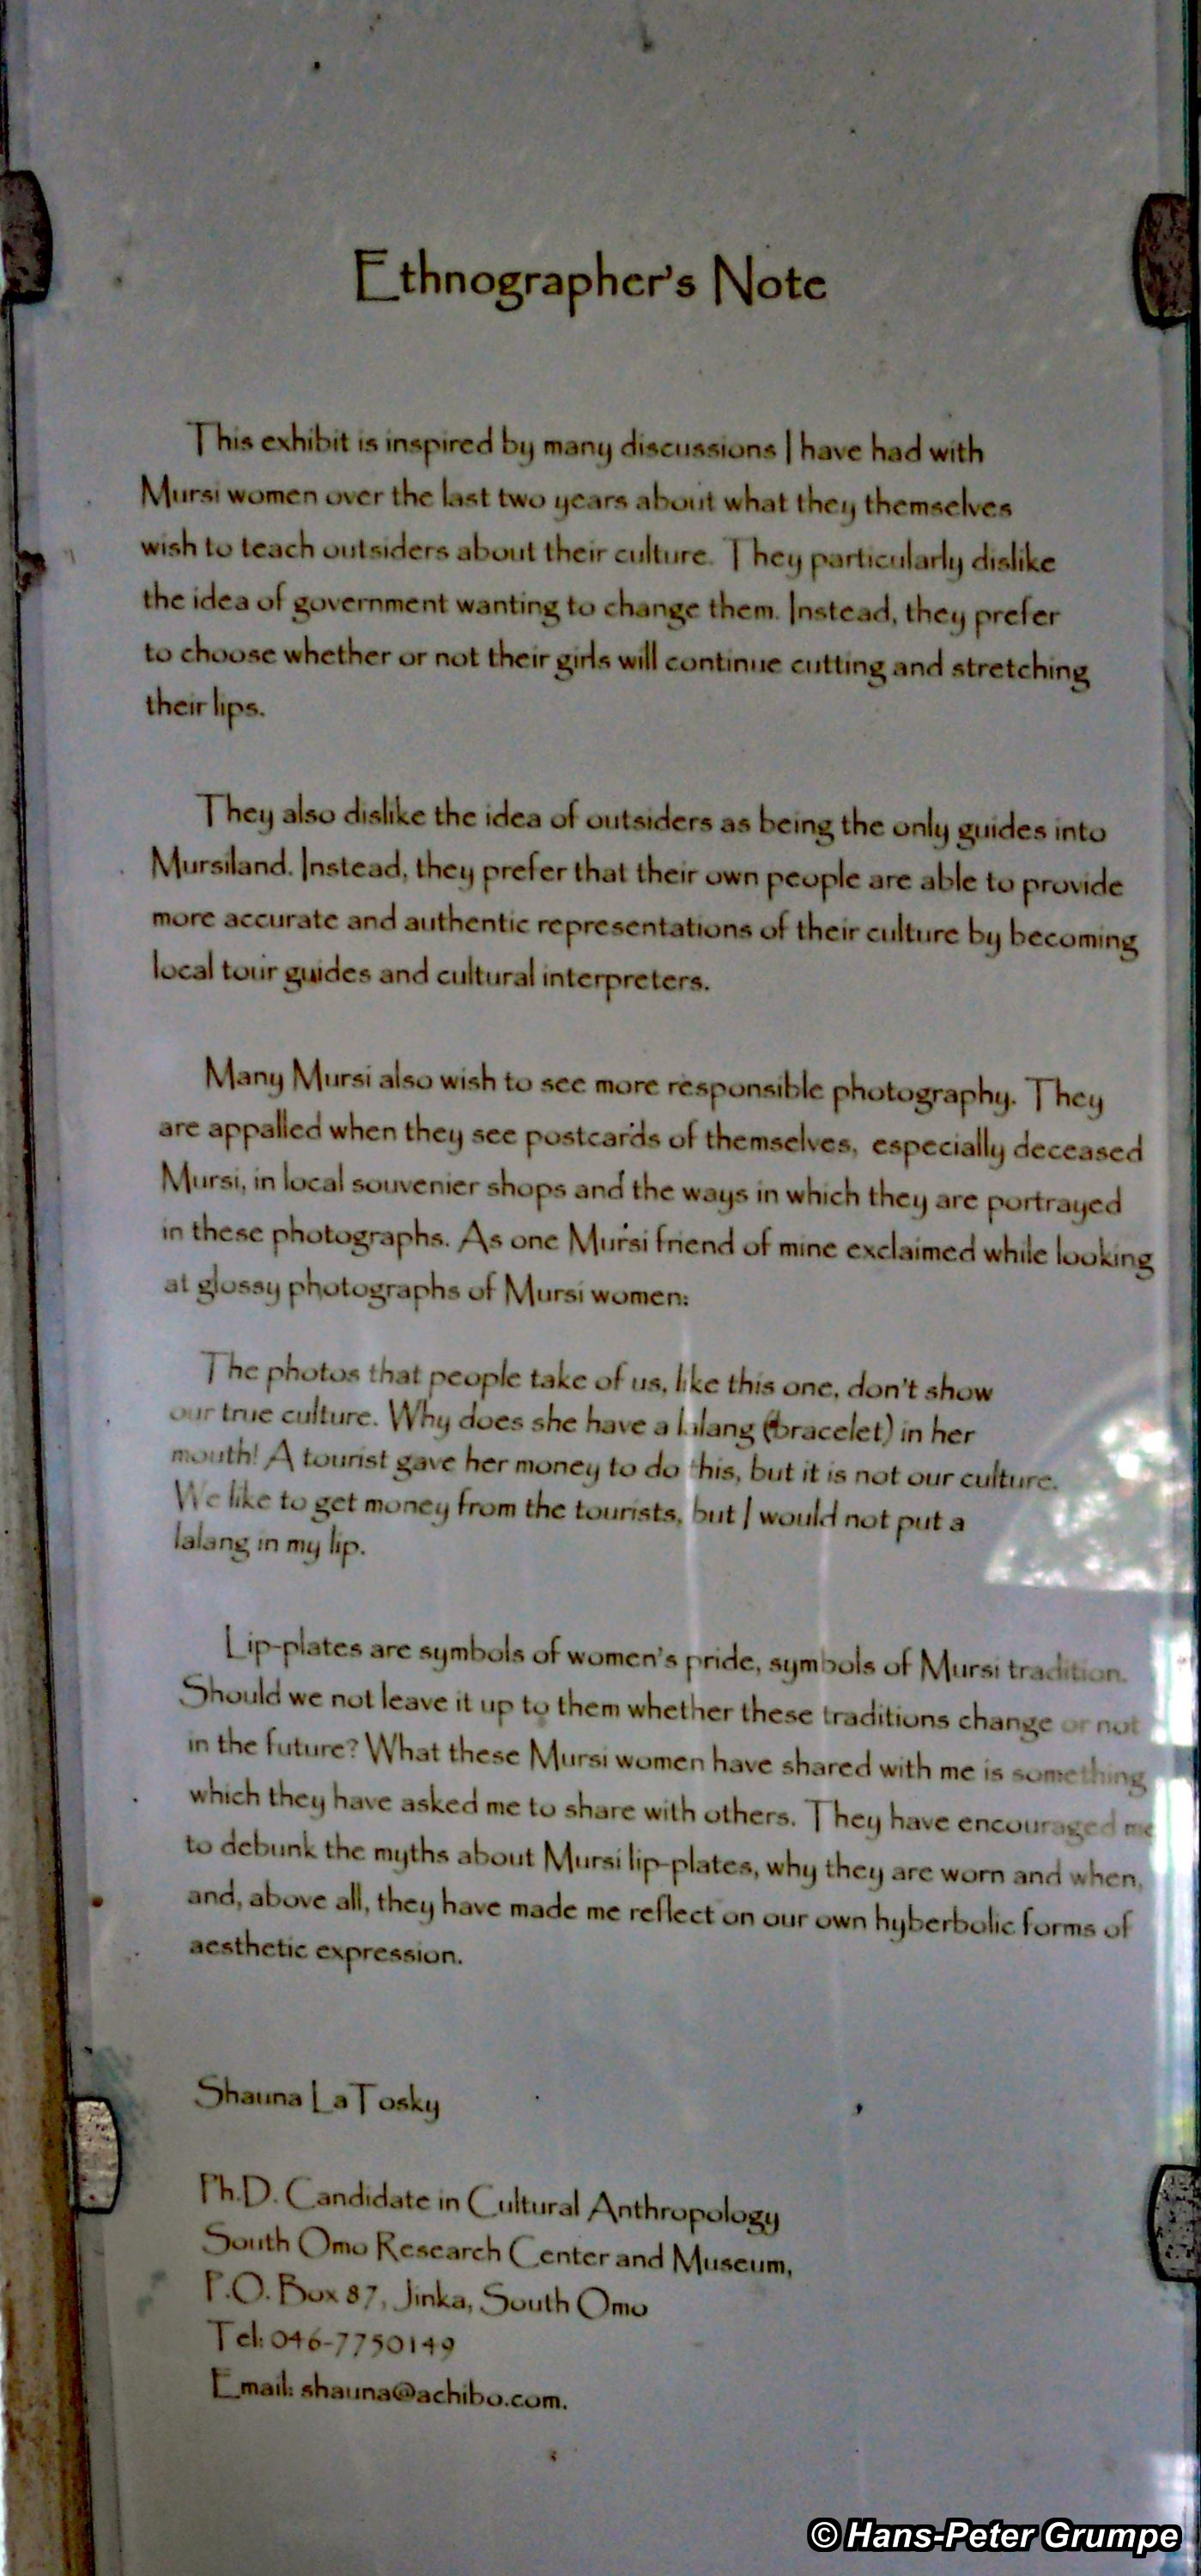 Ethnographer's Note
This exhibit is inspired by many discussions I have had with
Mursi women over the last two years about what they themselves
wish to teach outsiders about their culture. They particularly dislike
the idea of government wanting to change them. Instead, they prefer
to choose whether or not their girls will continue cutting and stretching
their lips.
They also dislike the idea of outsiders as being the only guides into
Mursiland. Instead, they prefer that their own people are able to provide
more accurate and authentic representations of their culture by becoming
local tour guides and cultural interpreters.
Many Mursi also wish to see more responsible photography. They
are appalled when they see postcards of themselves, especially deceased
Mursi, in local souvenier shops and the ways in which they are portrayed
in these photographs. As one Mursi friend of mine exclaimed while looking
at glossy photographs of Mursi women:
The photos that people take of us, like this one, don't show
our true culture. Why does she have a lalang (bracelet) in her
mouth! A tourist gave her money to do this, but it is not our culture.
We like to get money from the tourists, but I would not put a
lalang in my lip.
Lip-plates are symbols of women's pride, symbols of Mursi tradition.
Should we not leave it up to them whether these traditions change or not
in the future? What these Mursi women have shared with me is something
which they have asked me to share with others. They have encouraged me
to debunk the myths about Mursi lip-plates, why they are worn and when,
and, above all, they have made me reflect on our own hyberbolic forms of
aesthetic expression.
Shauna LaTosky
Ph.D. Candidate in Cultural Anthropology
South Omo Research Center and Museum,
P.O. Box 87, Jinka, South Omo
Tel: 046-7750149
Email: shauna@achibo.com.
© Hans-Peter Grumpe